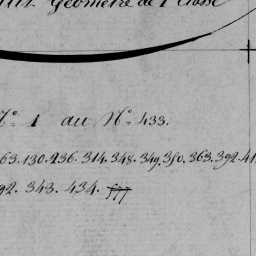 Géomètre de 1 Classe
N° 1 au N° 433.
63. 130. 236. 314. 348. 349. 350. 363. 392. 41
92. 343. 434.